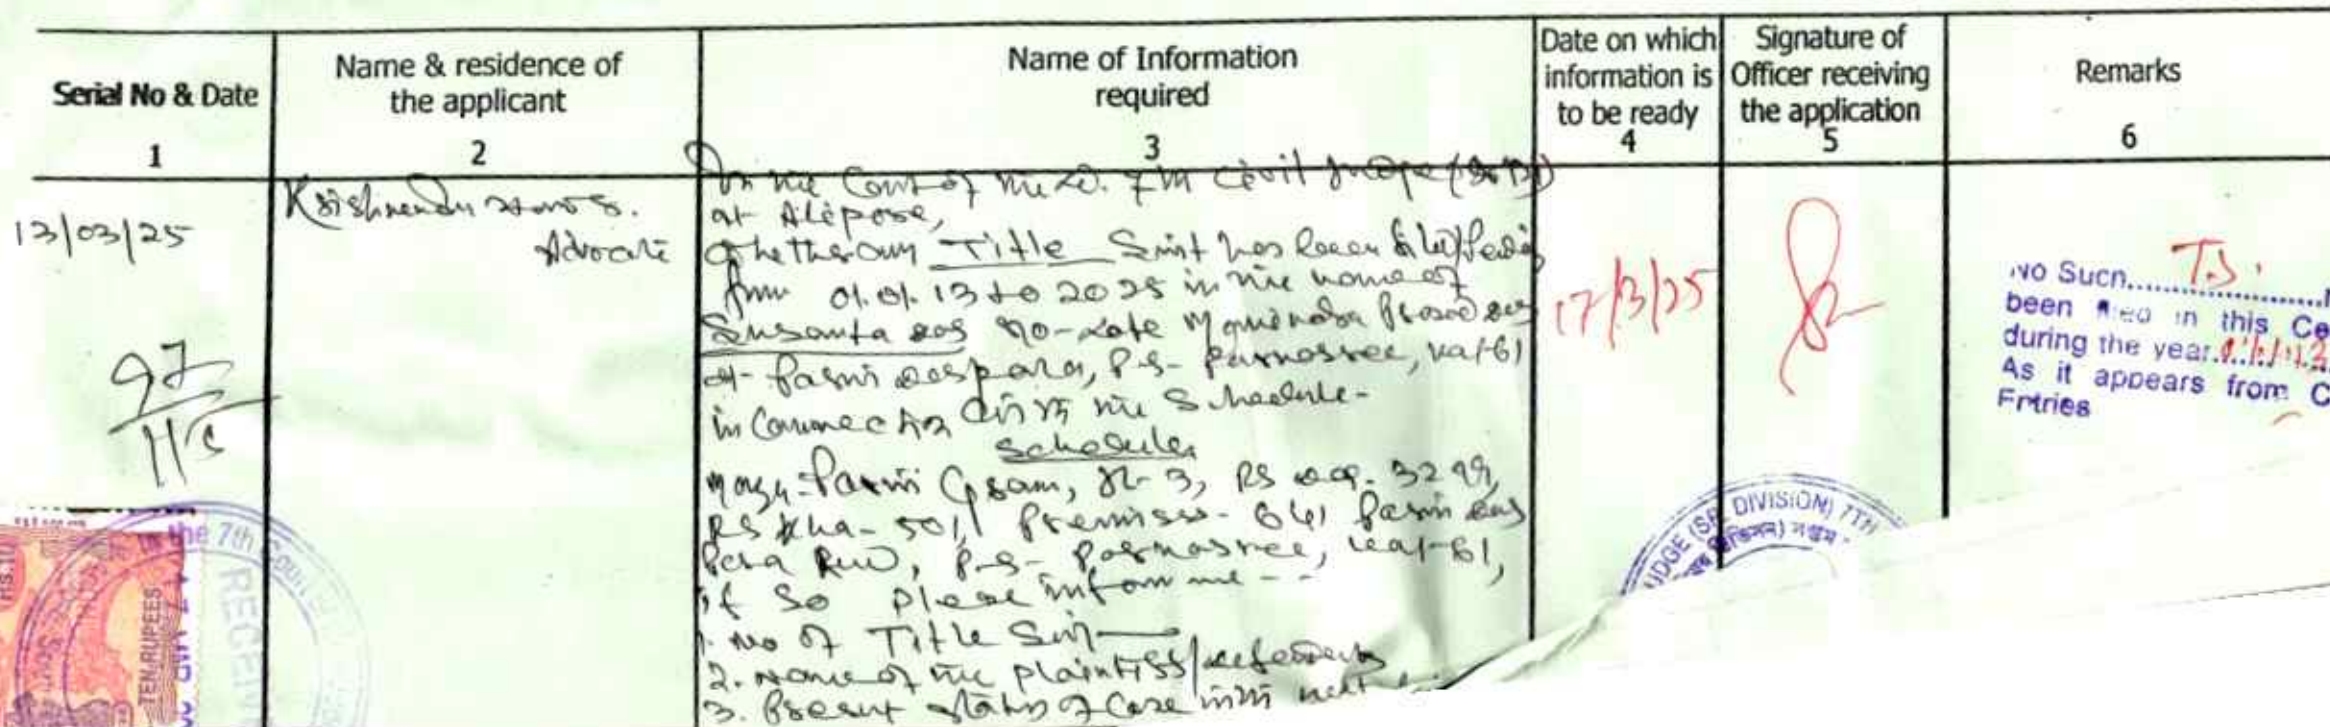 Serial No & Date
1
Name & residence of
the applicant
2
Name of Information
required
3
Date on which
information is
to be ready
4
Signature of
Officer receiving
the application
5
Remarks
6
13/03/25
Krishnendu
Advocate
In the Court of the Ld. 7th Civil Judge (Sr. Dn)
at Alipore,
Whether any Title Suit has been filed/Pending
from 01.01.13 to 2025 in the name of
Susanta Das S/o- Late Manindra Prosad Das
of- Parui Daspara, P.S- Parnasree, Kal-61
in Connection with the Schedule-
Schedule
Mouza- Parui Gram, JL- 3, RS Dag. 3299,
RS Kha- 501, Premises- 641 Parui Das
Para Road, P.S- Parnasree, Kal-61,
if So please inform me--
1. No of Title Suit
2. Name of the plaintiff/defendants
3. Present status of Case with next
17/3/25
No Such T.S.
been filed in this
during the year
As it appears from
Entries
JUDGE (SR. DIVISION) 7TH
the 7th Court
TEN RUPEES
RS.10